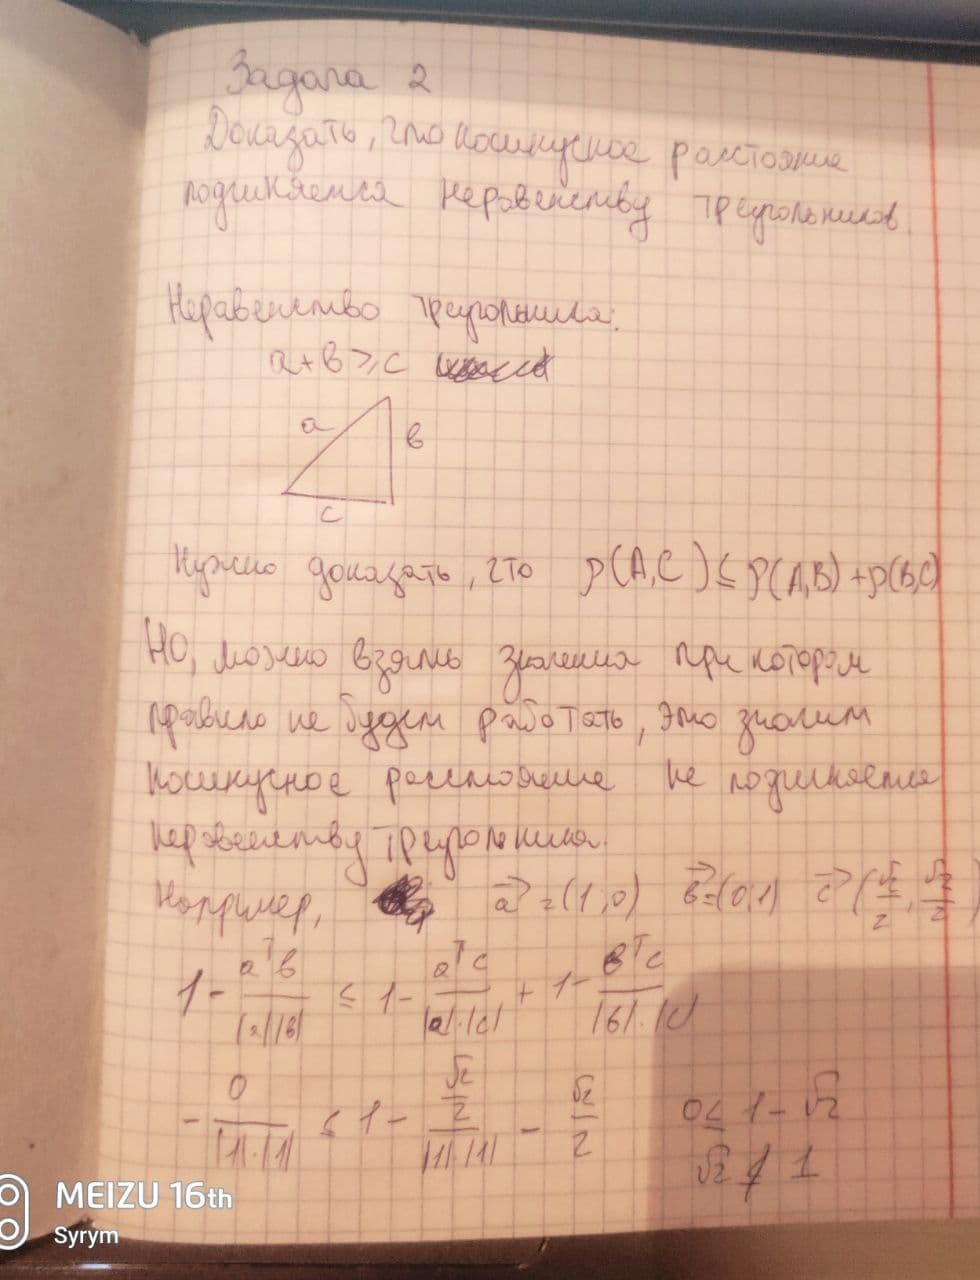 Задача 2
Доказать, что косинусное расстояние
подчиняется неравенству треугольников.
Неравенство треугольника:
a+b ≥ c
a
b
c
Нужно доказать, что ρ(A,C) ≤ ρ(A,B)+ρ(B,C)
НО, можно взять значения при котором
правило не будет работать, это значит
косинусное расстояние не подчиняется
неравенству треугольника.
Например, a⃗ =(1,0) b⃗=(0,1) c⃗ (√2/2, √2/2)
1 - aᵀb/|a||b| ≤ 1 - aᵀc/|a|·|c| + 1 - bᵀc/|b|·|c|
- 0/|1|·|1| ≤ 1 - (√2/2)/|1|·|1| - √2/2 0 ≤ 1-√2
√2 ≰ 1
MEIZU 16th
Syrym